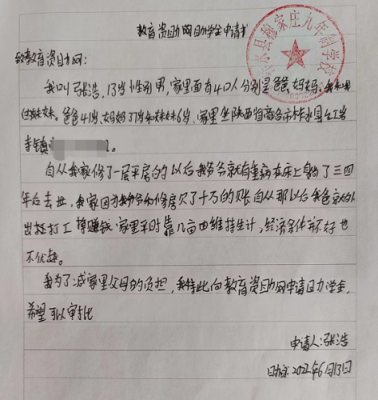 教育资助网自助学生申请书
致教育资助网:
我叫张浩,13岁性别男,家里面有4口人分别是爸爸,妈妈,我和
妹妹。爸爸41岁、妈妈37岁和妹妹6岁、家里住陕西省商洛市柞水县红岩
寺镇
自从我家修了一层平房的以后我爷爷就有重病在床上躺了三四
年后去世,我家因为爷爷和修房欠了十万的账自从那以后我爸爸
出去打工挣赚钱家里平时靠几亩田维持生计,经济条件不好也
不优越。
我为了减家里父母的负担,我特此向教育资助网申请自力学金,
希望可以审与比
申请人:张浩
日期:2022年6月13日
水县穆家庄九年制学校